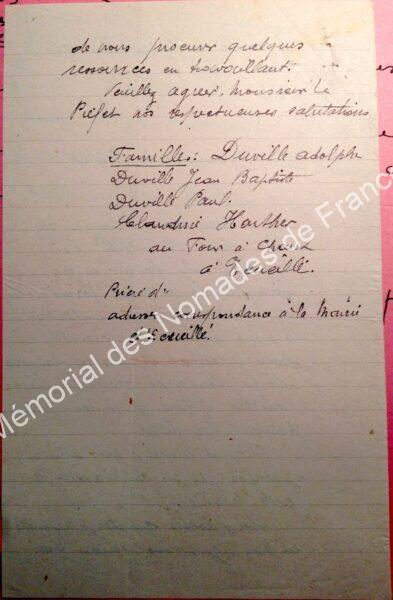 de nous procurer quelques
ressources en travaillant.
Veuillez agreer, Monsieur le
Préfet nos respectueuses salutations
Familles: Duville adolphe
Duville Jean Baptiste
Duville Paul.
au Four à Chaux
à Ecueillé.
Prière d'
adresser correspondance à la Mairie
d'Ecueillé.
Mémorial des Nomades de France